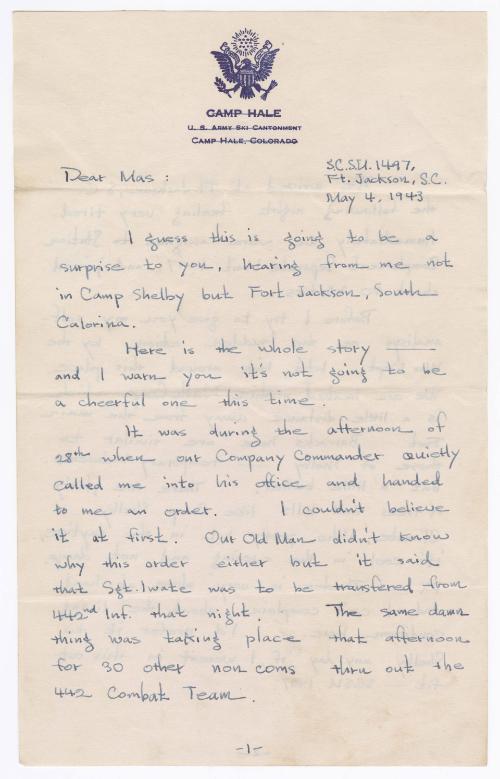 CAMP HALE
U. S. ARMY SKI CANTONMENT
CAMP HALE, COLORADO
S.C.S.U. 1497,
Dear Mas : Ft. Jackson, S.C.
May 4, 1943
I guess this is going to be a
surprise to you, hearing from me not
in Camp Shelby but Fort Jackson, South
Calorina.
Here is the whole story ——
and I warn you it's not going to be
a cheerful one this time.
It was during the afternoon of
28th when our Company Commander quietly
called me into his office and handed
to me an order. I couldn't believe
it at first. Our Old Man didn't know
why this order either but it said
that Sgt. Iwate was to be transfered from
442nd Inf. that night. The same damn
thing was taking place that afternoon
for 30 other non coms thru out the
442 Combat Team.
-1-